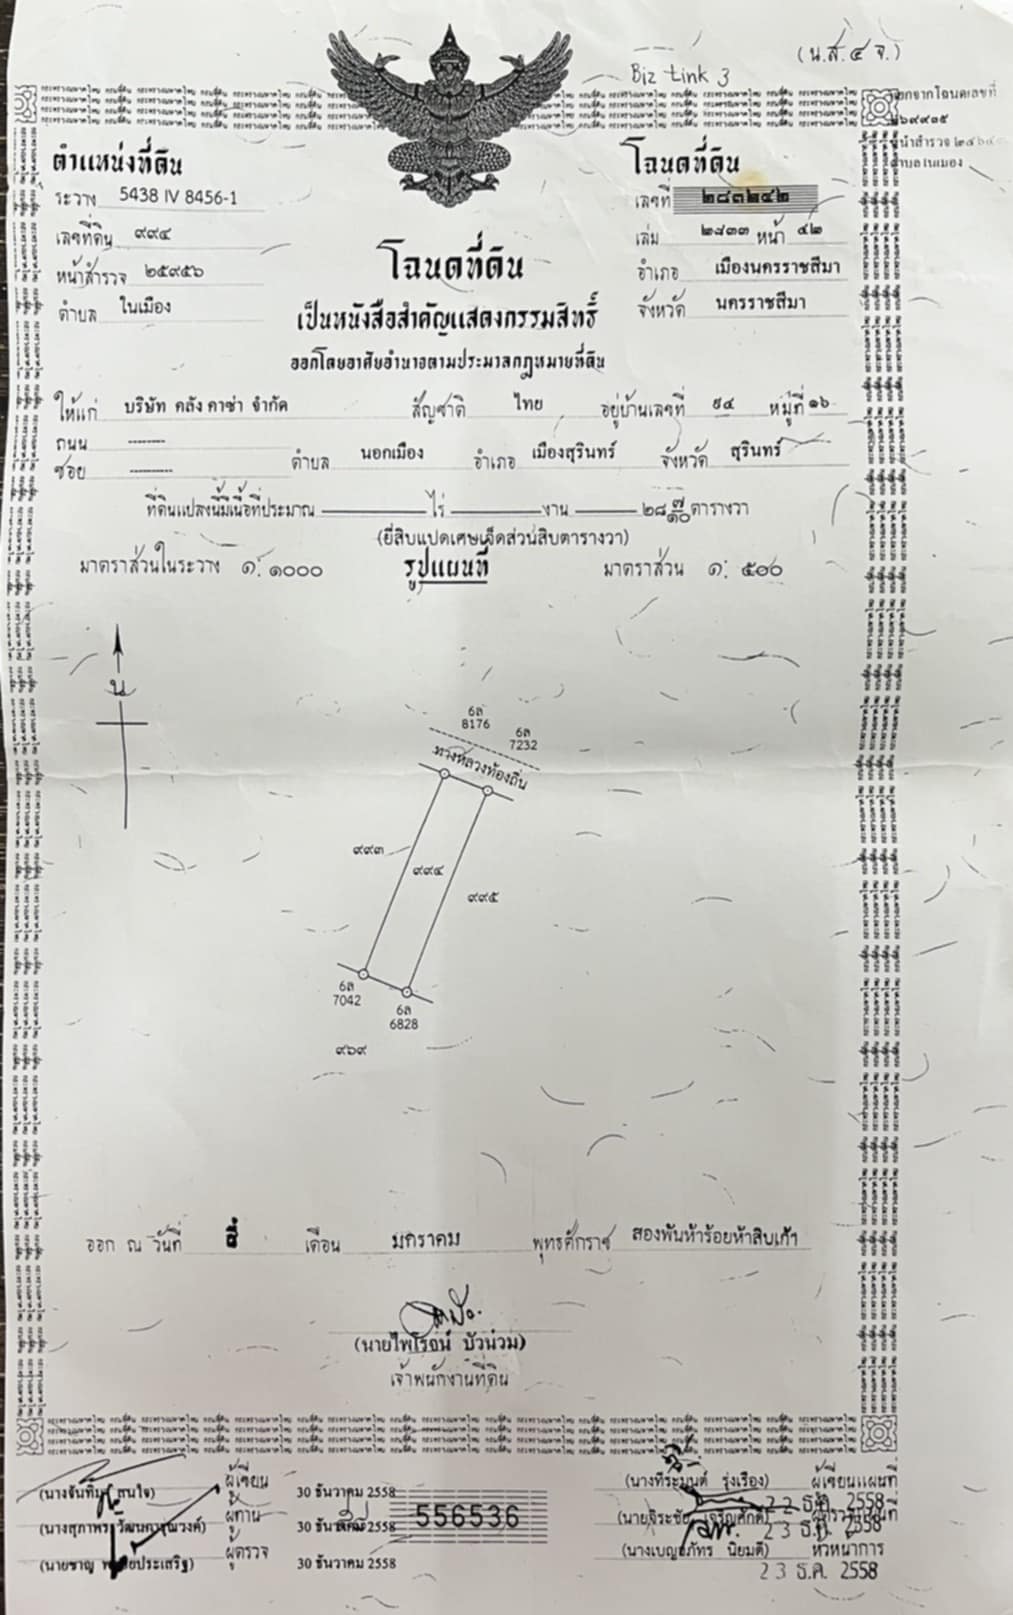 (น.ส.๔ จ.)
Biz Link 3
ตำแหน่งที่ดิน
ระวาง 5438 IV 8456-1
เลขที่ดิน ๙๙๔
หน้าสำรวจ ๒๕๙๕๖
ตำบล ในเมือง
โฉนดที่ดิน
เลขที่ ๒๘๓๒๔๒
เล่ม ๒๘๓๓ หน้า ๔๒
อำเภอ เมืองนครราชสีมา
จังหวัด นครราชสีมา
โฉนดที่ดิน
เป็นหนังสือสำคัญแสดงกรรมสิทธิ์
ออกโดยอาศัยอำนาจตามประมวลกฎหมายที่ดิน
ให้แก่ บริษัท คลัง คาซ่า จำกัด สัญชาติ ไทย อยู่บ้านเลขที่ ๙๔ หมู่ที่ ๑๖
ถนน --------
ซอย --------- ตำบล นอกเมือง อำเภอ เมืองสุรินทร์ จังหวัด สุรินทร์
ที่ดินแปลงนี้มีเนื้อที่ประมาณ ไร่ งาน ๒๘ ๗/๑๐ ตารางวา
(ยี่สิบแปดเศษเจ็ดส่วนสิบตารางวา)
มาตราส่วนในระวาง ๑:๑๐๐๐ รูปแผนที่ มาตราส่วน ๑: ๕๐๐
น
6ล
8176
6ล
7232
ทางหลวงท้องถิ่น
๙๙๓
๙๙๔
๙๙๕
6ล
7042
6ล
6828
๙๖๙
ออก ณ วันที่ สี่ เดือน มกราคม พุทธศักราช สองพันห้าร้อยห้าสิบเก้า
(นายไพโรจน์ บัวน่วม)
เจ้าพนักงานที่ดิน
ผู้เขียน 30 ธันวาคม 2558
ผู้ทาน 30 ธันวาคม 2558
ผู้ตรวจ 30 ธันวาคม 2558
556536
รุ่งเรือง) ผู้เขียนแผนที่
22 ธ.ค. 2558
(นายจิระชัย เจริญศักดิ์)
23 ธ.ค. 2558
นิยมดี) หัวหน้าการ
23 ธ.ค. 2558